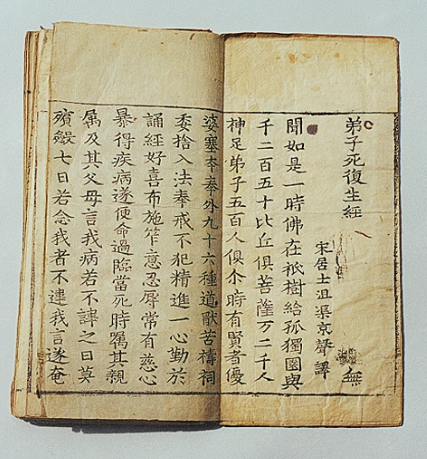 弟子死復生經 無
宋居士沮渠京聲譯
聞如是一時佛在祇樹給孤獨園與
千二百五十比丘俱菩薩万二千人
神足弟子五百人俱尒時有賢者優
婆塞夲奉外九十六種道猒苦禱祠
委捨入法奉戒不犯精進一心勤於
誦經好喜布施笮意忍辱常有慈心
暴得疾病遂便命過臨當死時囑其親
属及其父母言我病若不諱之日莫
殯殮七日若念我者不違我言遂奄